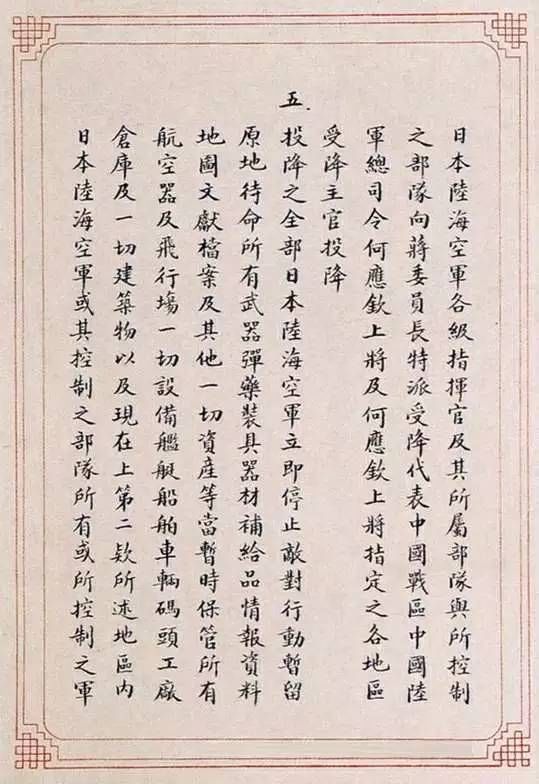 日本陸海空軍各級指揮官及其所屬部隊與所控制
之部隊向蔣委員長特派受降代表中國戰區中國陸
軍總司令何應欽上將及何應欽上將指定之各地區
受降主官投降
五.
投降之全部日本陸海空軍立即停止敵對行動暫留
原地待命所有武器彈藥裝具器材補給品情報資料
地圖文獻檔案及其他一切資產等當暫時保管所有
航空器及飛行場一切設備艦艇船舶車輛碼頭工廠
倉庫及一切建築物以及現在上第二款所述地區內
日本陸海空軍或其控制之部隊所有或所控制之軍